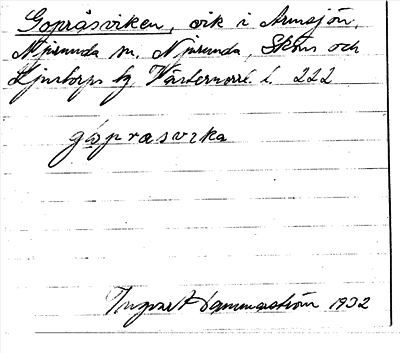 Gopråsviken, vik i Armsjön,
Njurunda sn. Njurunda, Sköns och
Ljustorps tg. Västernorrl. l. 222
gópråsvika
Ingvar Hammarström 1932